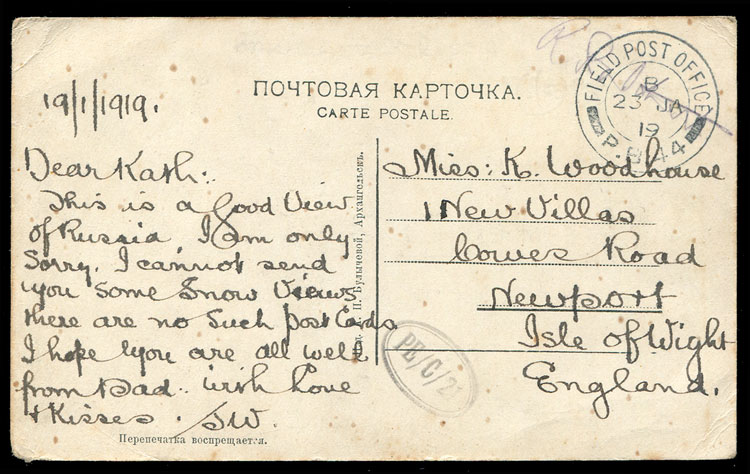 ПОЧТОВАЯ КАРТОЧКА.
CARTE POSTALE.
FIELD POST OFFICE
B
23 JA
19
P.B 44
19/1/1919.
Dear Kath:.
This is a Good View
of Russia, I am only
Sorry, I cannot send
you some Snow Views
there are no Such post Cards
I hope you are all well
from Dad.. with Love
& Kisses. JW.
Miss: K. Woodhouse
1 New Villas
Cowes Road
Newport
Isle of Wight
England.
П. Булычевой, Архангельскъ.
PB/C/2
Перепечатка воспрещается.